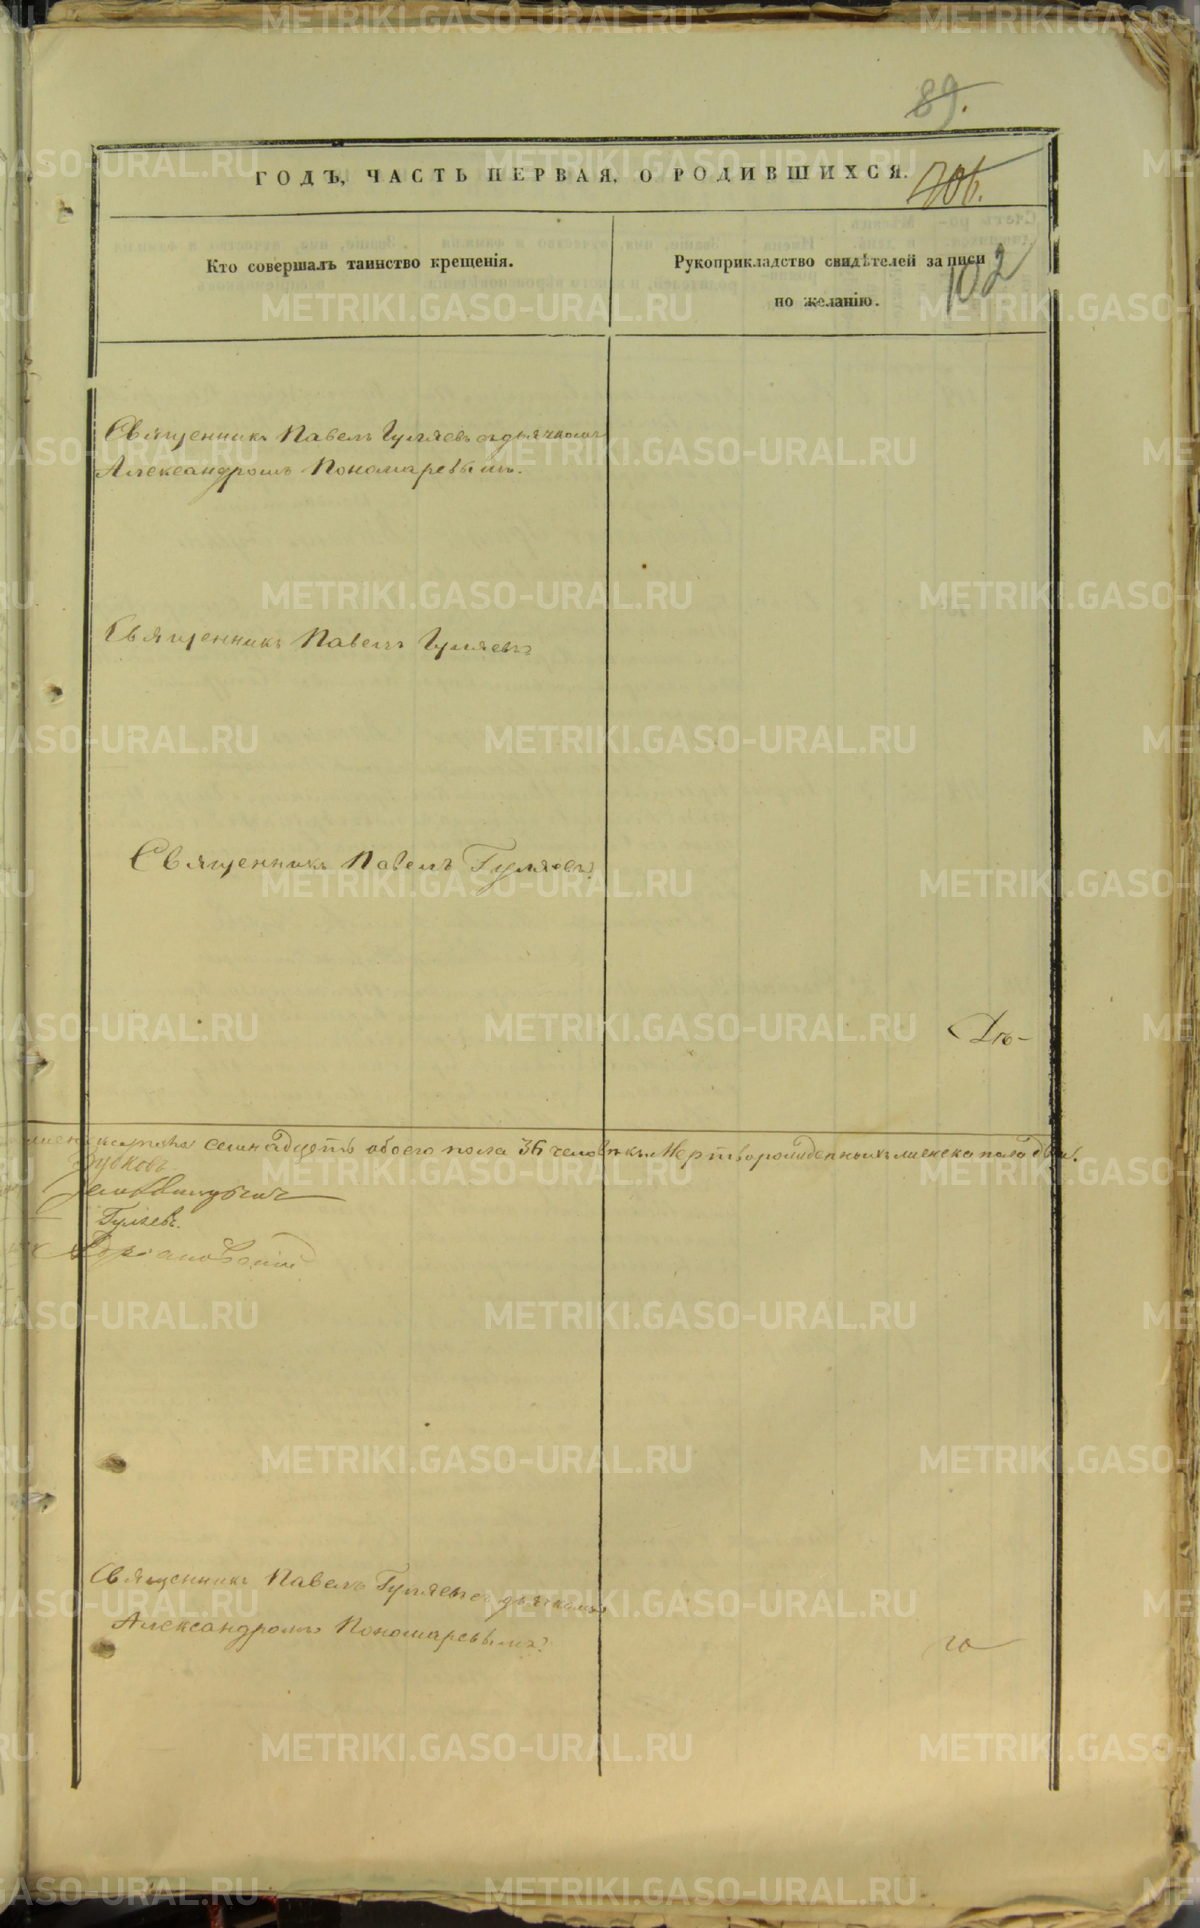 89.
ГОДЪ, ЧАСТЬ ПЕРВАЯ, О РОДИВШИХСЯ.
106.
Кто совершалъ таинство крещенія.
Рукоприкладство свидѣтелей записи
по желанію.
102
Священникъ Павелъ Гуляевъ съ дьячкомъ
Александромъ Пономаревымъ.
Священникъ Павелъ Гуляевъ
Священникъ Павелъ Гуляевъ
Дъ-
семнадцать обоего пола 36 человѣкъ. Мертворожденныхъ женска пола два.
Гуляевъ.
Священникъ Павелъ Гуляевъ съ дьячкомъ
Александромъ Пономаревымъ
го
METRIKI.GASO-URAL.RU